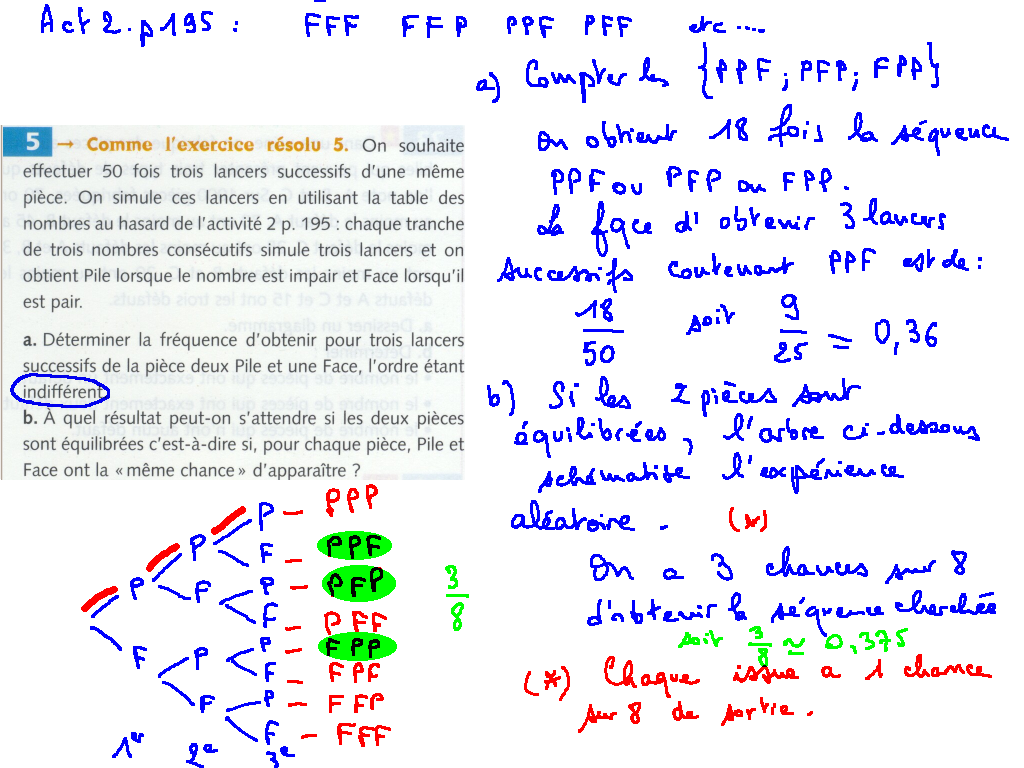 Act 2. p 195 : FFF FFP PPF PFF etc ....
a) Compter les {PPF ; PFP ; FPP}
On obtient 18 fois la séquence
PPF ou PFP ou FPP.
La fqce d'obtenir 3 lancers
successifs contenant PPF est de :
18/50 soit 9/25 = 0,36
5 → Comme l'exercice résolu 5. On souhaite
effectuer 50 fois trois lancers successifs d'une même
pièce. On simule ces lancers en utilisant la table des
nombres au hasard de l'activité 2 p. 195 : chaque tranche
de trois nombres consécutifs simule trois lancers et on
obtient Pile lorsque le nombre est impair et Face lorsqu'il
est pair.
a. Déterminer la fréquence d'obtenir pour trois lancers
successifs de la pièce deux Pile et une Face, l'ordre étant
indifférent.
b. À quel résultat peut-on s'attendre si les deux pièces
sont équilibrées c'est-à-dire si, pour chaque pièce, Pile et
Face ont la « même chance » d'apparaître ?
b) Si les 2 pièces sont
équilibrées, l'arbre ci-dessous
schématise l'expérience
aléatoire. (*)
On a 3 chances sur 8
d'obtenir la séquence cherchée
soit 3/8 ≃ 0,375
(*) Chaque issue a 1 chance
sur 8 de sortie.
P - PPP
P F - PPF
P F P - PFP
F - PFF
P - FPP
F P F - FPF
F P - FFP
F - FFF
3/8
1er 2e 3e